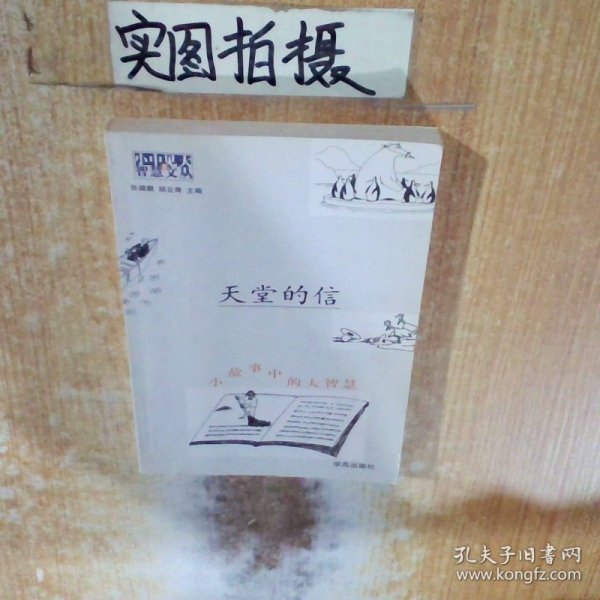 实图拍摄
智慧文众
张健鹏 胡足青 主编
天堂的信
小故事中的大智慧
学苑出版社
孔夫子旧书网
www.kongfz.com